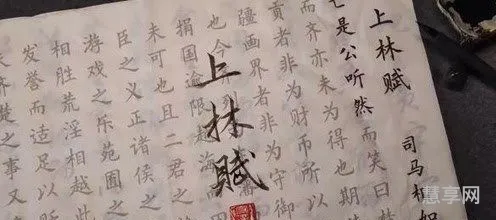 上林赋
司马相如
亡是公听然而笑曰
而齐亦未为得也
贡者非为财币所以
疆画界者非为守御
也今
上林赋
捐国逾限越海
未可也且二君之
臣之义正诸侯之
游戏之乐苑囿之
相胜荒淫相越此
发誉而适足以
齐楚之事又
慧享网